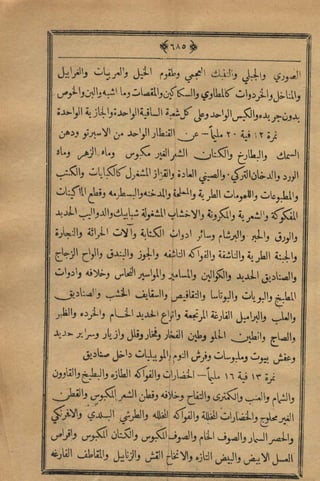 ﴿ ٦٨٥ ﴾
الصوري والجبلي والتنباك العجمي وطقوم الخيل والعربيات والغرابيل
والمناخل والخردوات كالمطاوي والسكاكين والمقصات وما اشبه والبن والخوص
بدون جريده والكبس الواحد وعلى كل شعبة الساقية الواحدة والجازية الواحدة
نمرة ١٢ فية ٢٠ مليماً — عن القنطار الواحد من الاسبرتو ودهن
السمك والبطارخ والكتان الشعر الغير مكبوس وماء الزهر وماء
الورد والدخان التركي والصيني العادة والقزاز المشغول كالكبايات والكتب
والمطبوعات واللحومات الطرية والمملحة والمدخنه والبسطرمه وقطع الماكينات
المفكوكة والشعرية والمكرونة والاخشاب المشغولة شبابيك والدواليب الحديد
والورق والحبر والبرشام وسائر ادوات الكتابة وآلات الحراثة والنجارة
والجبنة الطرية والناشفة والفواكه الناشفه والجوز والبندق والواح الزجاج
والصناديق الحديد والكوالين والمسامير والمواسير النحاس وخلافه وادوات
المطبخ والبويات والبوتاسا والتفافيص والسقايف الخشب والصناديق
والعلب والبراميل الفارغة المرتجعة وانواع الحديد الخام والخرده والظفر
والصاج وانطين الحلو وطين الفخار وفخار وقلل وازيار وسرابر حديد
وعفش بيوت وملبوسات وفرش النوم الموبيليات داخل صناديق
نمرة ١٣ فية ١٦ مليماً — الخضارات والفواكه الطازه والبطيخ والقاوون
والشمام والعنب والكمثرى والتفاح وخلافه وقطن الشعر المكبوس والقطن
الغير محلوج والخضارات المخللة والفواكه المخلله والطرشي البلدي والافرنكي
والحصر السمار والصوف الخام والصوف المكبوس والكتان المكبوس واقراص
العسل الابيض والبيض التازه والانخاخ القش والزنابيل والمقاطف الفارغه